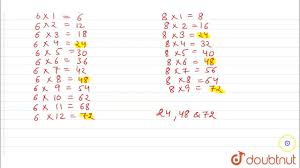 6 x 1 = 6
6 x 2 = 12
6 x 3 = 18
6 x 4 = 24
6 x 5 = 30
6 x 6 = 36
6 x 7 = 42
6 x 8 = 48
6 x 9 = 54
6 x 10 = 62
6 x 11 = 68
6 x 12 = 72
8 x 1 = 8
8 x 2 = 16
8 x 3 = 24
8 x 4 = 32
8 x 5 = 40
8 x 6 = 48
8 x 7 = 56
8 x 8 = 64
8 x 9 = 72
24, 48 & 72
doubtnut